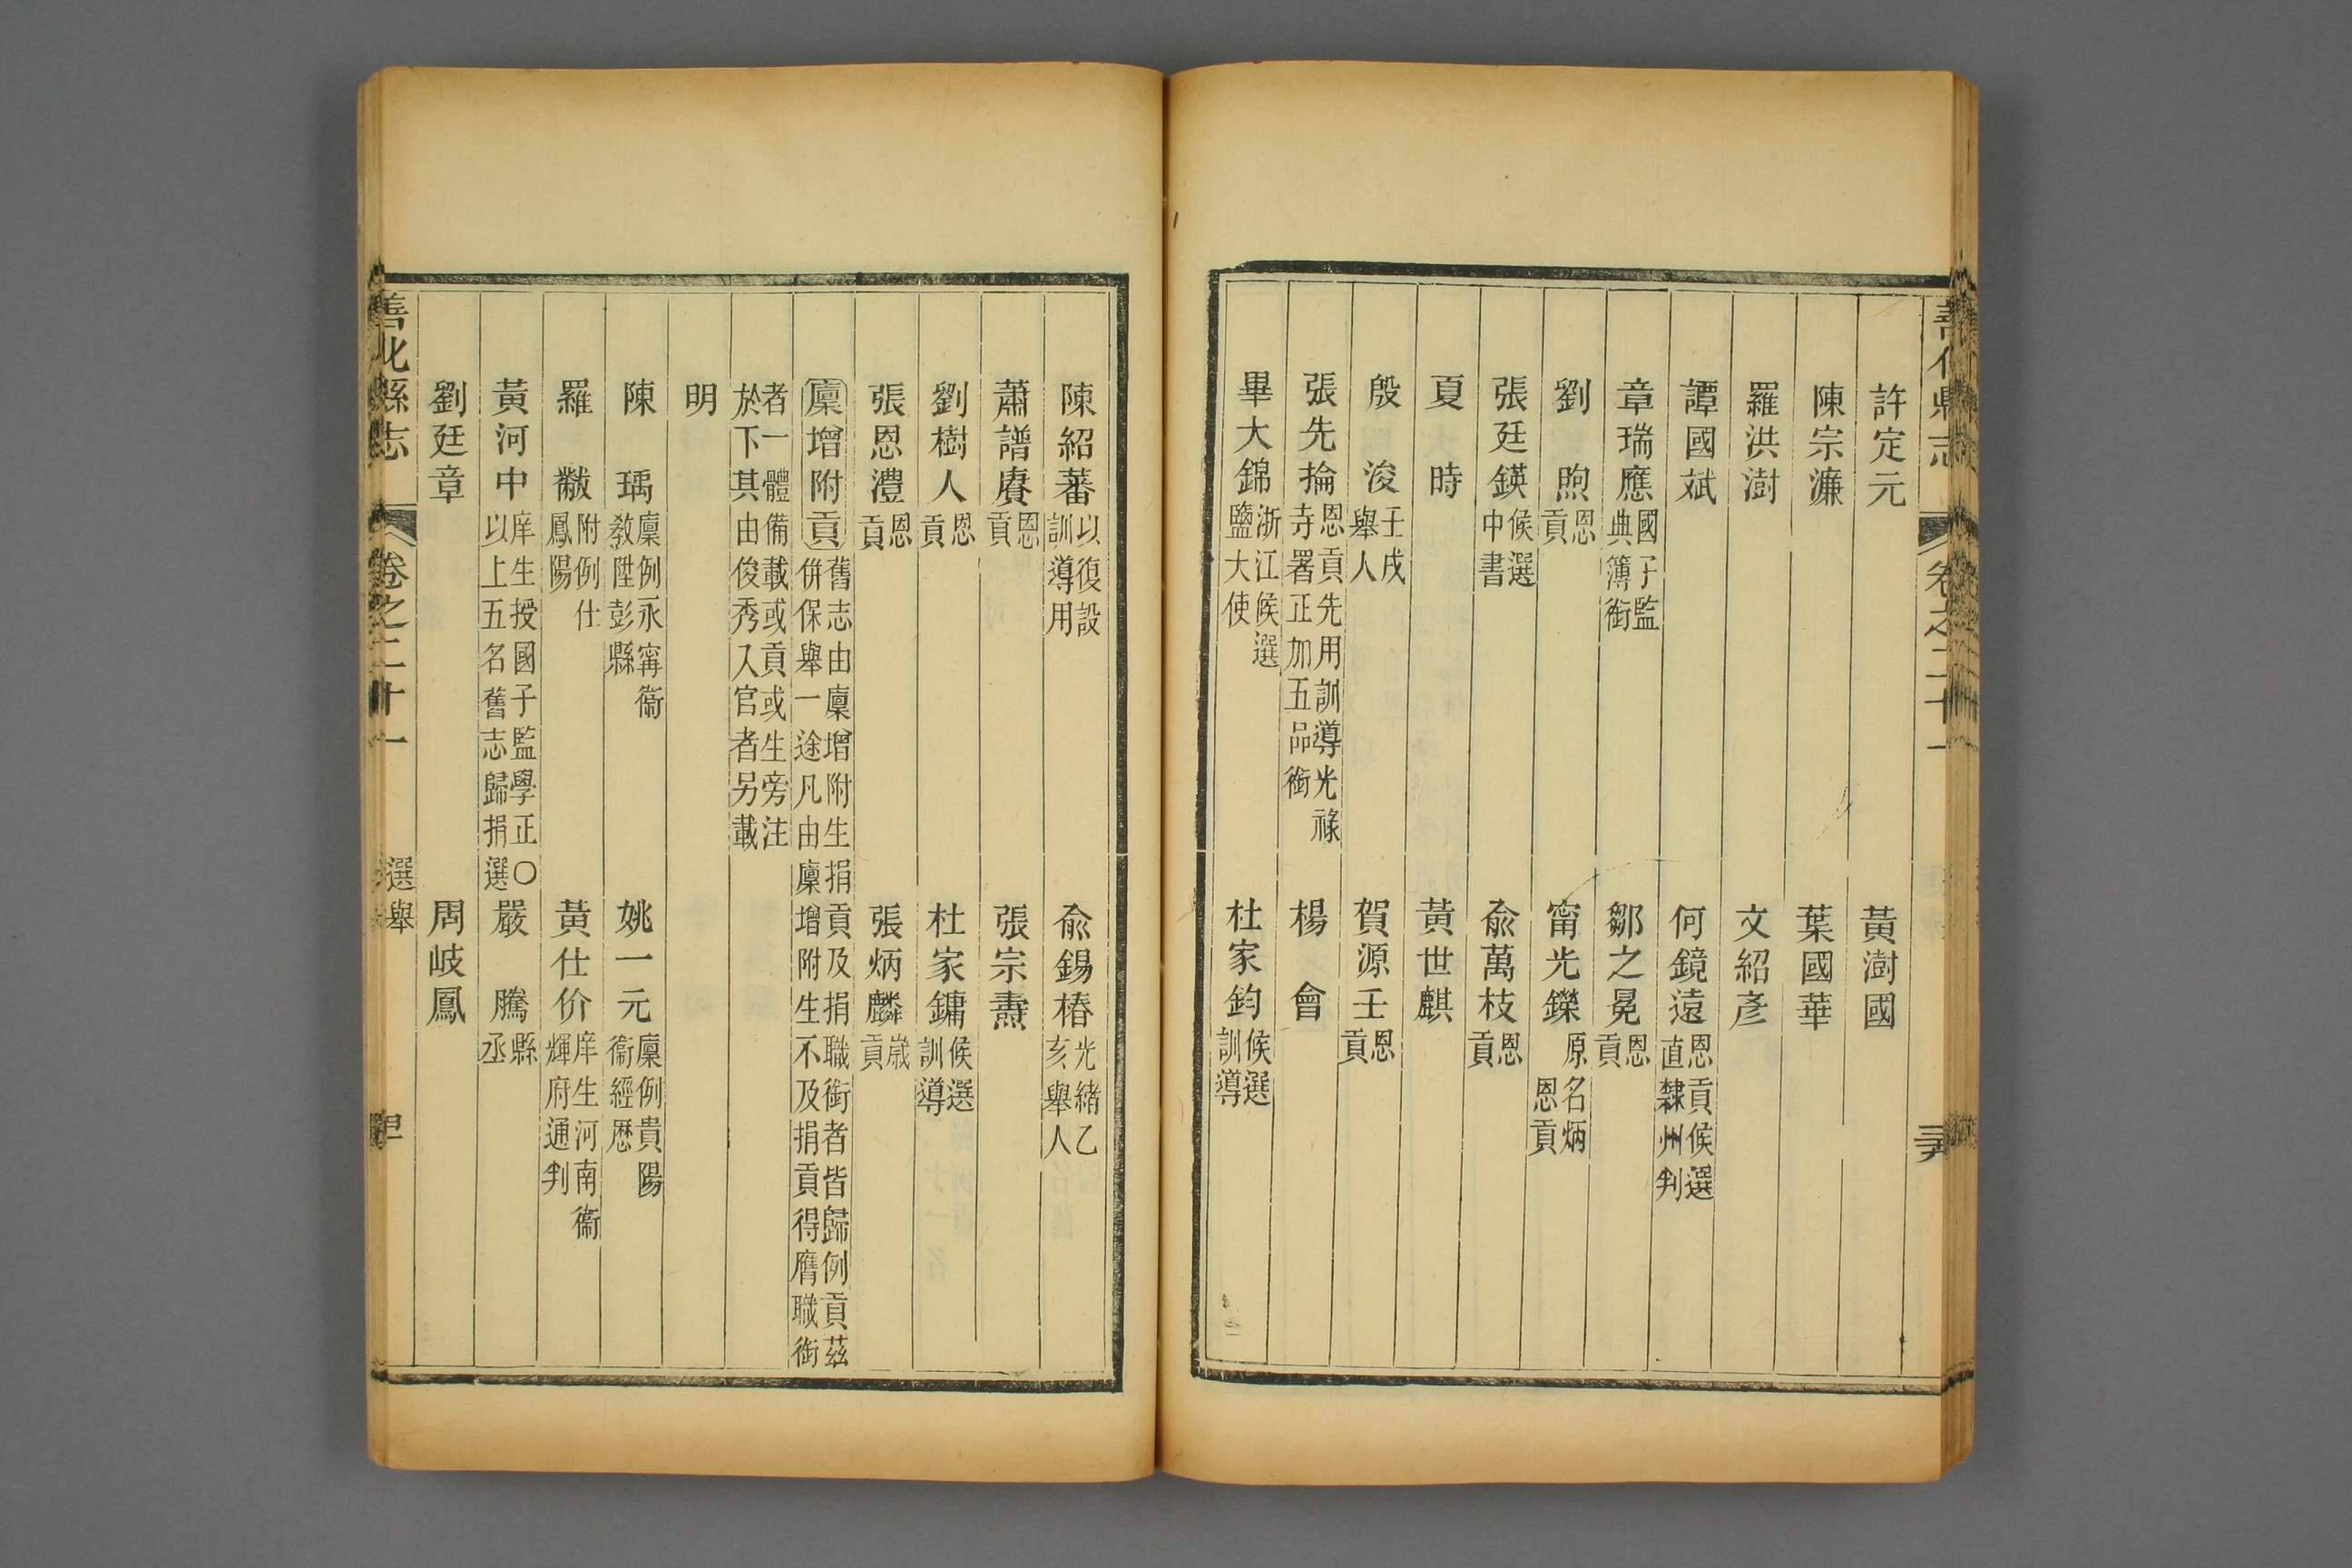 善化縣志 卷之二十一 三九
許定元 黃澍國
陳宗濂 葉國華
羅洪澍 文紹彥
譚國斌 何鏡遠 恩貢候選直隸州判
章瑞應 國子監典簿銜 鄒之冕 恩貢
劉煦 恩貢 甯光鑅 原名炳恩貢
張廷鍈 候選中書 俞萬枝 恩貢
夏時 黃世麒
殷浚 壬戌舉人 賀源壬 恩貢
張先掄 恩貢先用訓導光祿寺署正加五品銜 楊會
畢大錦 浙江候選鹽大使 杜家鈞 候選訓導
陳紹蕃 以復設訓導用 俞錫椿 光緒乙亥舉人
蕭譜賡 恩貢 張宗燾
劉樹人 恩貢 杜家鏞 候選訓導
張恩澧 恩貢 張炳麟 歲貢
廩增附貢 舊志由廩增附生捐貢及捐職銜者皆歸例貢茲併保舉一途凡由廩增附生不及捐貢得膺職銜
者一體備載或貢或生旁注於下其由俊秀入官者另載
明
陳瑀 廩例永甯衞教陞彭縣 姚一元 廩例貴陽衞經歷
羅黻 附例仕鳳陽 黃仕价 庠生河南衞輝府通判
黃河中 庠生授國子監學正○以上五名舊志歸捐選 嚴騰 縣丞
劉廷章 周岐鳳
善化縣志 卷之二十一 選舉